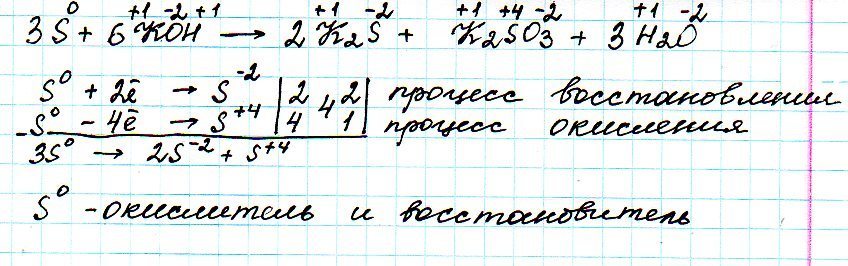 3S⁰ + 6K⁺¹O⁻²H⁺¹ → 2K₂⁺¹S⁻² + K₂⁺¹S⁺⁴O₃⁻² + 3H₂⁺¹O⁻²
S⁰ + 2ē → S⁻² | 2 | 4 | 2 | процесс восстановления
S⁰ - 4ē → S⁺⁴ | 4 | | 1 | процесс окисления
3S⁰ → 2S⁻² + S⁺⁴
S⁰ - окислитель и восстановитель